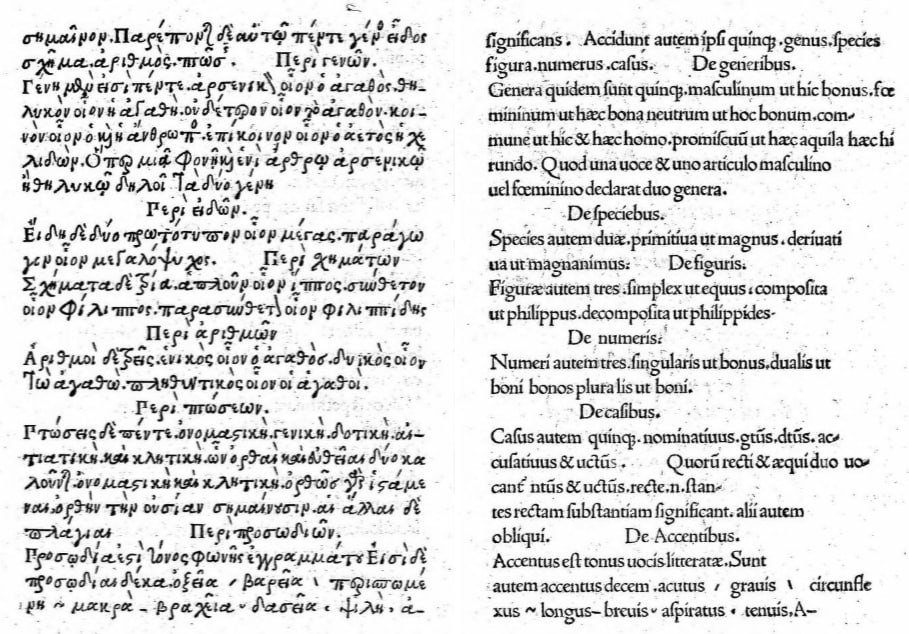 σημαῖνον. Παρέπον δὲ αὐτῷ πέντε γέν εἶδος
σχῆμα. ἀριθμὸς. πτῶσ. Περὶ γενῶν.
Γένη μὲν εἰσὶ πέντε. ἀρσενικ οἷον ὁ ἀγαθὸς. θη-
λυκὸν οἷον ἡ ἀγαθὴ. οὐδέτερον οἷον τὸ ἀγαθὸν. κοι-
νὸν οἷον ὁ καὶ ἡ ἄνθρωπ. ἐπίκοινον οἷον ὁ ἀετὸς ἡ χε
λιδὼν. Ὅπερ μιᾷ φονῇ καὶ ἑνὶ ἄρθρῳ ἀρσενικῷ
ἢ θηλυκῷ δηλοῖ τὰ δύο γένη
Περὶ εἰδῶν.
Εἴδη δὲ δύο πρωτότυπον οἷον μέγας. παράγω
γον οἷον μεγαλόψυχος. Περὶ χημάτων
Σχήματα δὲ τρία. ἁπλοῦν οἷον ἵππος. σύνθετον
οἷον Φίλιππος. παρασύνθετ οἷον φιλιππίδης
Περὶ ἀριθμῶν
Ἀριθμοὶ δὲ τρεῖς. ἑνικὸς οἷον ὁ ἀγαθὸς. δυικὸς οἷον
τὼ ἀγαθω. πληθυντικὸς οἷον οἱ ἀγαθοὶ.
Περὶ πτώσεων.
Πτώσεις δὲ πέντε. ὀνομαστικὴ. γενικὴ. δοτικὴ. αἰ-
τιατικὴ. καὶ κλητικὴ. ὧν ὀρθαὶ καὶ εὐθεῖαι δύο κα
λοῦνται ὀνομαστικὴ καὶ κλητικὴ. ὀρθῶς γὰρ ἱστάμε
ναι. ὀρθὴν τὴν οὐσίαν σημαίνουσιν. αἱ ἄλλαι δὲ
πλάγιαι Περὶ προσωδιῶν.
Προσωδία ἐστὶ τόνος φωνῆς ἐγγραμμάτου Εἰσὶ δὲ
προσωδίαι δέκα. ὀξεῖα / βαρεῖα \ περισπωμέ
νη ~ μακρὰ - βραχεῖα ᵕ δασεῖα ʽ ψιλὴ ʼ ἀ-
significans. Accidunt autem ipsi quinqꝫ. genus. species
figura. numerus. casus. De generibus.
Genera quidem sunt quinqꝫ. masculinum ut hic bonus. fœ
mininum ut hæc bona neutrum ut hoc bonum. com-
mune ut hic & hæc homo. promiscuũ ut hæc aquila hæc hi
rundo. Quod una uoce & uno articulo masculino
uel fœminino declarat duo genera.
De speciebus.
Species autem duæ. primitiua ut magnus. deriuati
ua ut magnanimus: De figuris:
Figuræ autem tres. simplex ut equus: composita
ut philippus. decomposita ut philippides.
De numeris:
Numeri autem tres. singularis ut bonus. dualis ut
boni bonos plura lis ut boni.
De casibus.
Casus autem quinqꝫ. nominatiuus. gtũs. dtũs. ac-
cusatiuus & uctũs. Quorũ recti & æqui duo uo-
cant̃ ntũs & uctũs. recte. n. stan-
tes rectam substantiam significant. alii autem
obliqui. De Accentibus.
Accentus est tonus uocis litteratæ. Sunt
autem accentus decem. acutus / grauis \ circunfle
xus ~ longus- breuis ᵕ aspiratus ʽ tenuis. A-